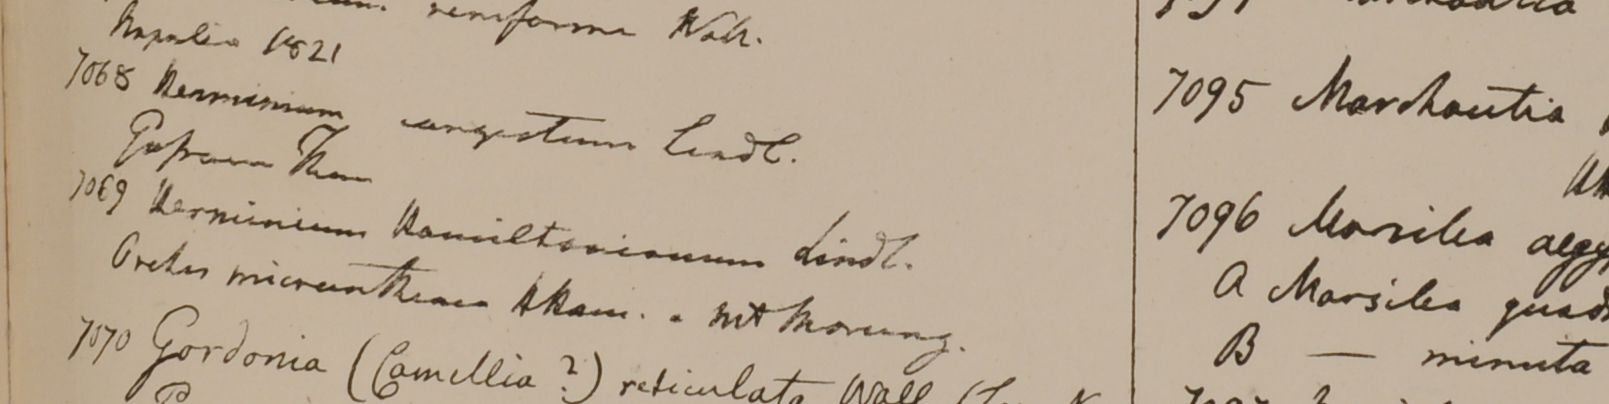 reniforme Wall.
Napalia 1821
7068 Herminium congestum Lindl.
Gossain Than
7069 Herminium Hamiltonianum Lindl.
Orchis micrantha HHam. a Mt Morung.
7070 Gordonia (Camellia ?) reticulata Wall
7095 Marchantia
7096 Marsilea aegy
A Marsilea quad
B — minuta